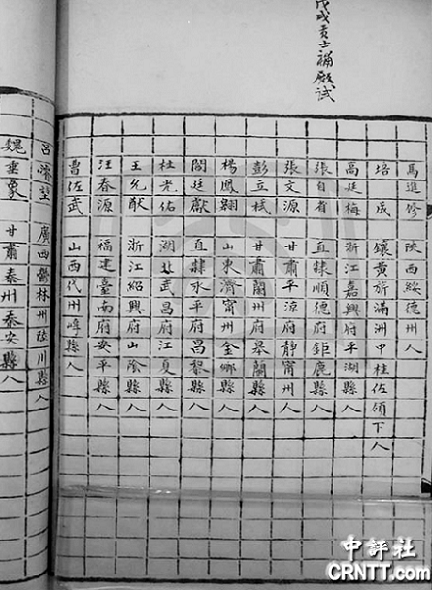 戊戌貢士補殿試
馬進修 陝西綏德州人
培成 鑲黃旗滿洲甲桂佐領下人
高廷梅 浙江嘉興府平湖縣人
張自省 直隸順德府鉅鹿縣人
張文源 甘肅平涼府靜甯州人
彭立栻 甘肅蘭州府皋蘭縣人
楊鳳翱 山東濟甯州金鄉縣人
閻廷獻 直隸永平府昌黎縣人
杜光佑 湖北武昌府江夏縣人
王允猷 浙江紹興府山陰縣人
汪春源 福建臺南府安平縣人
曹佐武 山西代州崞縣人
呂濬堃 廣西鬱林州陸川縣人
魏垂象 甘肅秦州秦安縣人
中評社
CRNTT.com